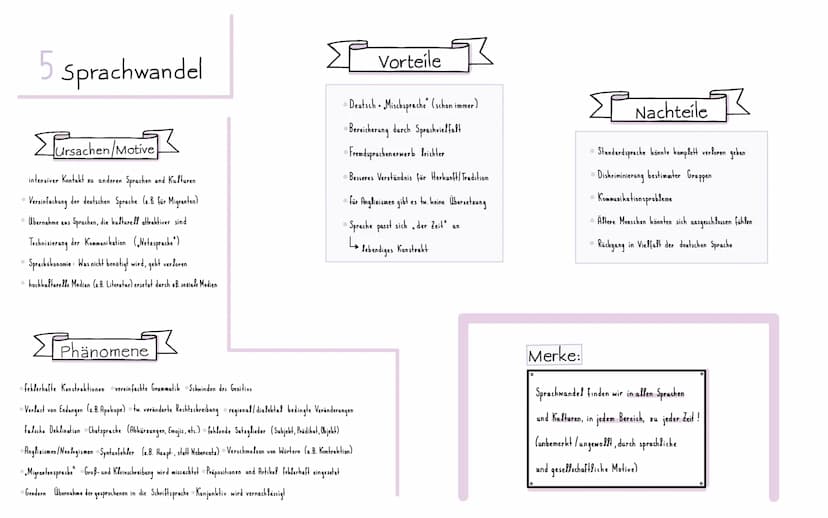 5 Sprachwandel
Ursachen/Motive
intensiver Kontakt zu anderen Sprachen und Kulturen
Vereinfachung der deutschen Sprache (z.B. für Migranten)
Übernahme aus Sprachen, die kulturell attraktiver sind
Technisierung der Kommunikation („Netzsprache")
Sprachökonomie: Was nicht benötigt wird, geht verloren
hochkulturelle Medien (z.B. Literatur) ersetzt durch z.B. soziale Medien
Phänomene
fehlerhafte Konstruktionen vereinfachte Grammatik Schwinden des Genitivs
Verlust von Endungen (z.B. Apokope) tw. veränderte Rechtschreibung regional/dialektal bedingte Veränderungen
Falsche Deklination Chatsprache (Abkürzungen, Emojis, etc.) fehlende Satzglieder (Subjekt, Prädikat, Objekt)
Anglizismen/Neologismen Syntaxfehler (z.B. Haupt-, statt Nebensatz) Verschmelzen von Wörtern (z.B. Kontraktion)
„Migrantensprache" Groß- und Kleinschreibung wird missachtet Präpositionen und Artikel fehlerhaft eingesetzt
Gendern Übernahme der gesprochenen in die Schriftsprache Konjunktiv wird vernachlässigt
Vorteile
Deutsch = „Mischsprache" (schon immer)
Bereicherung durch Sprachvielfalt
Fremdsprachenerwerb leichter
Besseres Verständnis für Herkunft/Tradition
Für Anglizismen gibt es tw. keine Übersetzung
Sprache passt sich „der Zeit" an
↳ lebendiges Konstrukt
Nachteile
Standardsprache könnte komplett verloren gehen
Diskriminierung bestimmter Gruppen
Kommunikationsprobleme
Ältere Menschen könnten sich ausgeschlossen fühlen
Rückgang in Vielfalt der deutschen Sprache
Merke:
Sprachwandel finden wir in allen Sprachen
und Kulturen, in jedem Bereich, zu jeder Zeit!
(unbemerkt/ungewollt, durch sprachliche
und gesellschaftliche Motive)